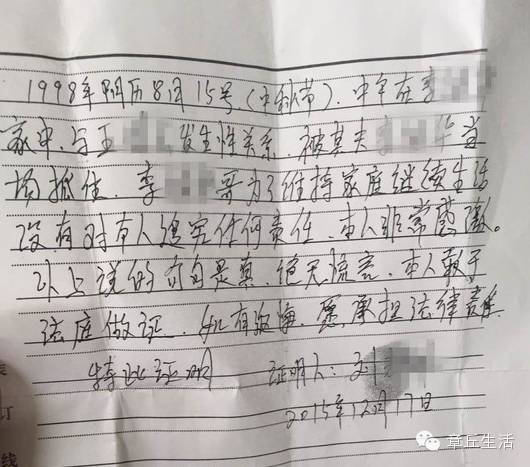 1998年阴历8月15号(中秋节).中午在李
家中.与王 发生性关系.被其夫李 华当
场抓住.李 哥为了维持家庭继续生活
没有对本人追究任何责任.本人非常感激。
以上说的句句是真.绝无谎言.本人敢于
法庭做证.如有返悔.愿承担法律责任
特此证明 证明人:刘
2015年12月17日
订
线
章丘生活